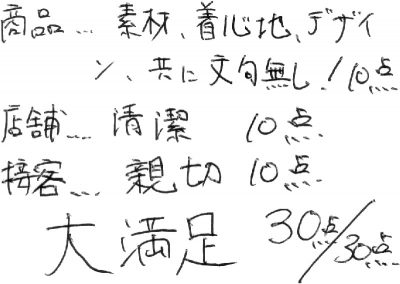 商品… 素材、着心地、デザイ
ン、共に文句無し！10点
店舗… 清潔 10点
接客… 親切 10点
大満足 30点/30点